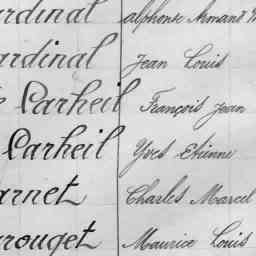 ardinal alphonse Armand
ardinal Jean Louis
Carheil François Jean
Carheil Yves Etienne
arnet Charles Marcel
rouget Maurice Louis